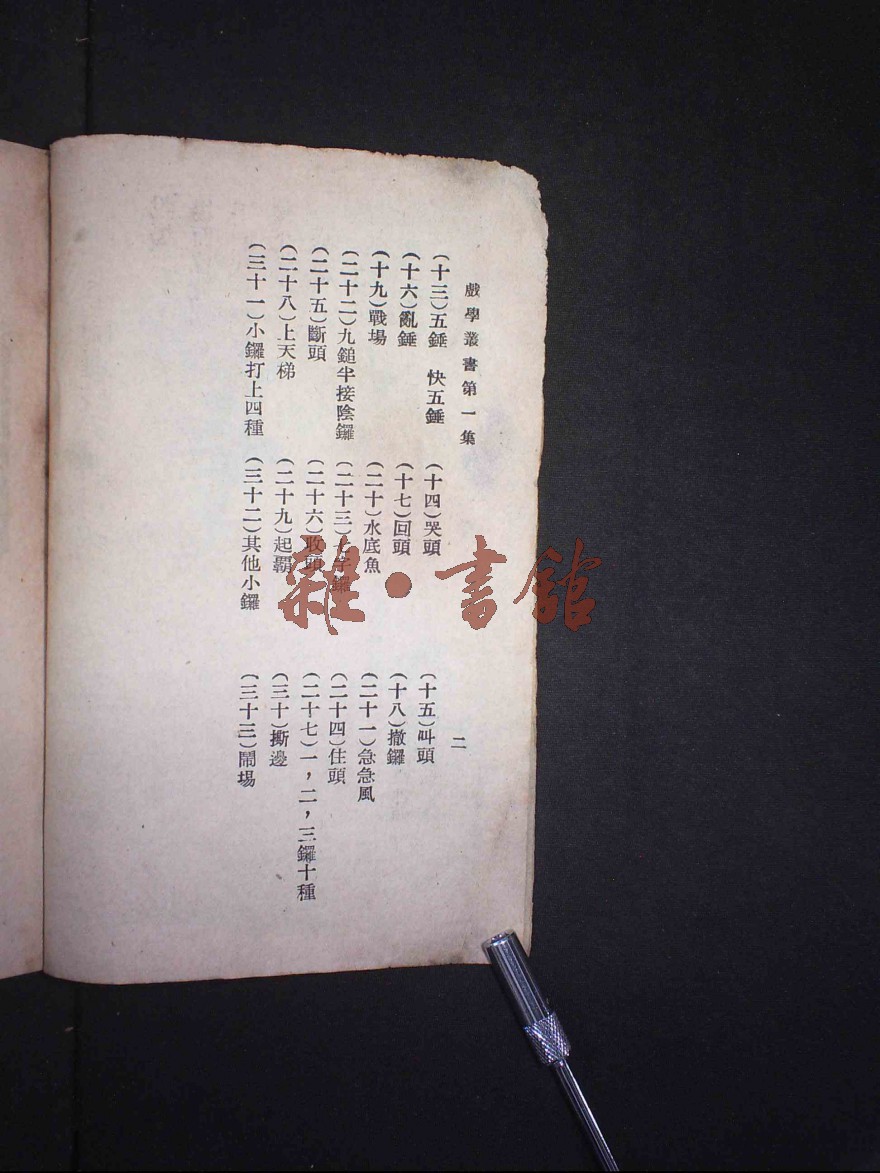 戲學叢書第一集
二
(十三)五錘 快五錘
(十四)哭頭
(十五)叫頭
(十六)亂錘
(十七)回頭
(十八)撤鑼
(十九)戰場
(二十)水底魚
(二十一)急急風
(二十二)九鎚半接陰鑼
(二十三)字鑼
(二十四)住頭
(二十五)斷頭
(二十六)收頭
(二十七)一,二,三鑼十種
(二十八)上天梯
(二十九)起霸
(三十)撕邊
(三十一)小鑼打上四種
(三十二)其他小鑼
(三十三)鬧場
雜·書館